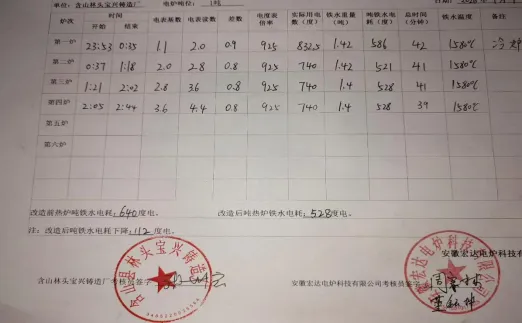 单位：含山林头宝兴铸造厂 电炉吨位：1吨
炉次 时间 电表基数 电表读数 差数 电度表倍率 实际用电数（度） 铁水重量（吨） 吨铁水电耗（度） 总时间（分钟） 铁水温度 备注
开始 结束
第一炉 23:53 0:35 1.1 2.0 0.9 925 832.5 1.42 586 42 1580℃ 冷炉
第二炉 0:37 1:18 2.0 2.8 0.8 925 740 1.42 521 41 1580℃
第三炉 1:21 2:02 2.8 3.6 0.8 925 740 1.4 528 41 1580℃
第四炉 2:05 2:44 3.6 4.4 0.8 925 740 1.4 528 39 1580℃
第五炉
第六炉
改造前热炉吨铁水电耗：640度电。 改造后吨热炉铁水电耗：528度电。
注：改造后吨铁水电耗下降：112度电。
安徽宏达电炉科技有限
含山林头宝兴铸造厂考核员签字 安徽宏达电炉科技有限公司考核员签字